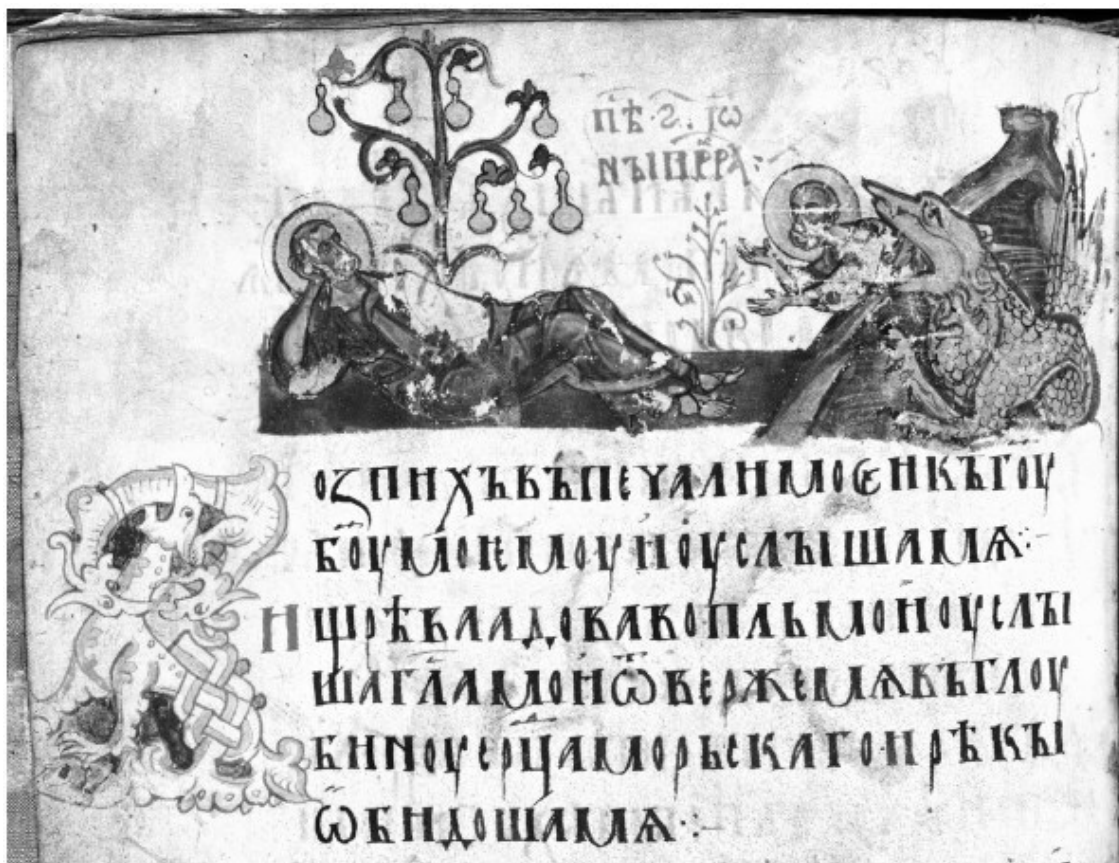 пѣ· ѕ· іѡ
ны прр҃ка:
озпихъ въ печали моѥи къ г҃оу
б҃оу моѥмоу и оуслыша мѧ·:-
и щрѣва адова вопль мои оуслы
ша гл҃а мои ѿверже мѧ въ глоу
биноу ср҃ца морьскаго и рѣкы
ѡбидоша мѧ·:-